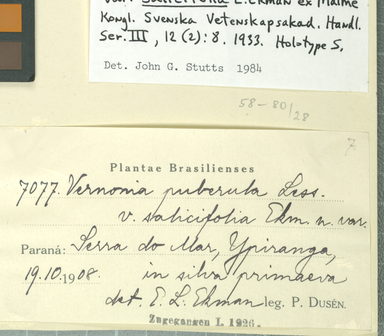 var. salicifolia E. Ekman ex Malme
Kongl. Svenska Vetenskapsakad. Handl.
Ser. III, 12 (2): 8. 1933. Holotype S.
Det. John G. Stutts 1984
58-80/28
7
Plantae Brasilienses
7077. Vernonia puberula Less.
v. salicifolia Ekm. n. var.
Paraná: Serra do Mar, Ypiranga,
19.10.1908. in silva primaeva
det. E. L. Ekman leg. P. DUSÉN.
Zugegangen I. 1926.